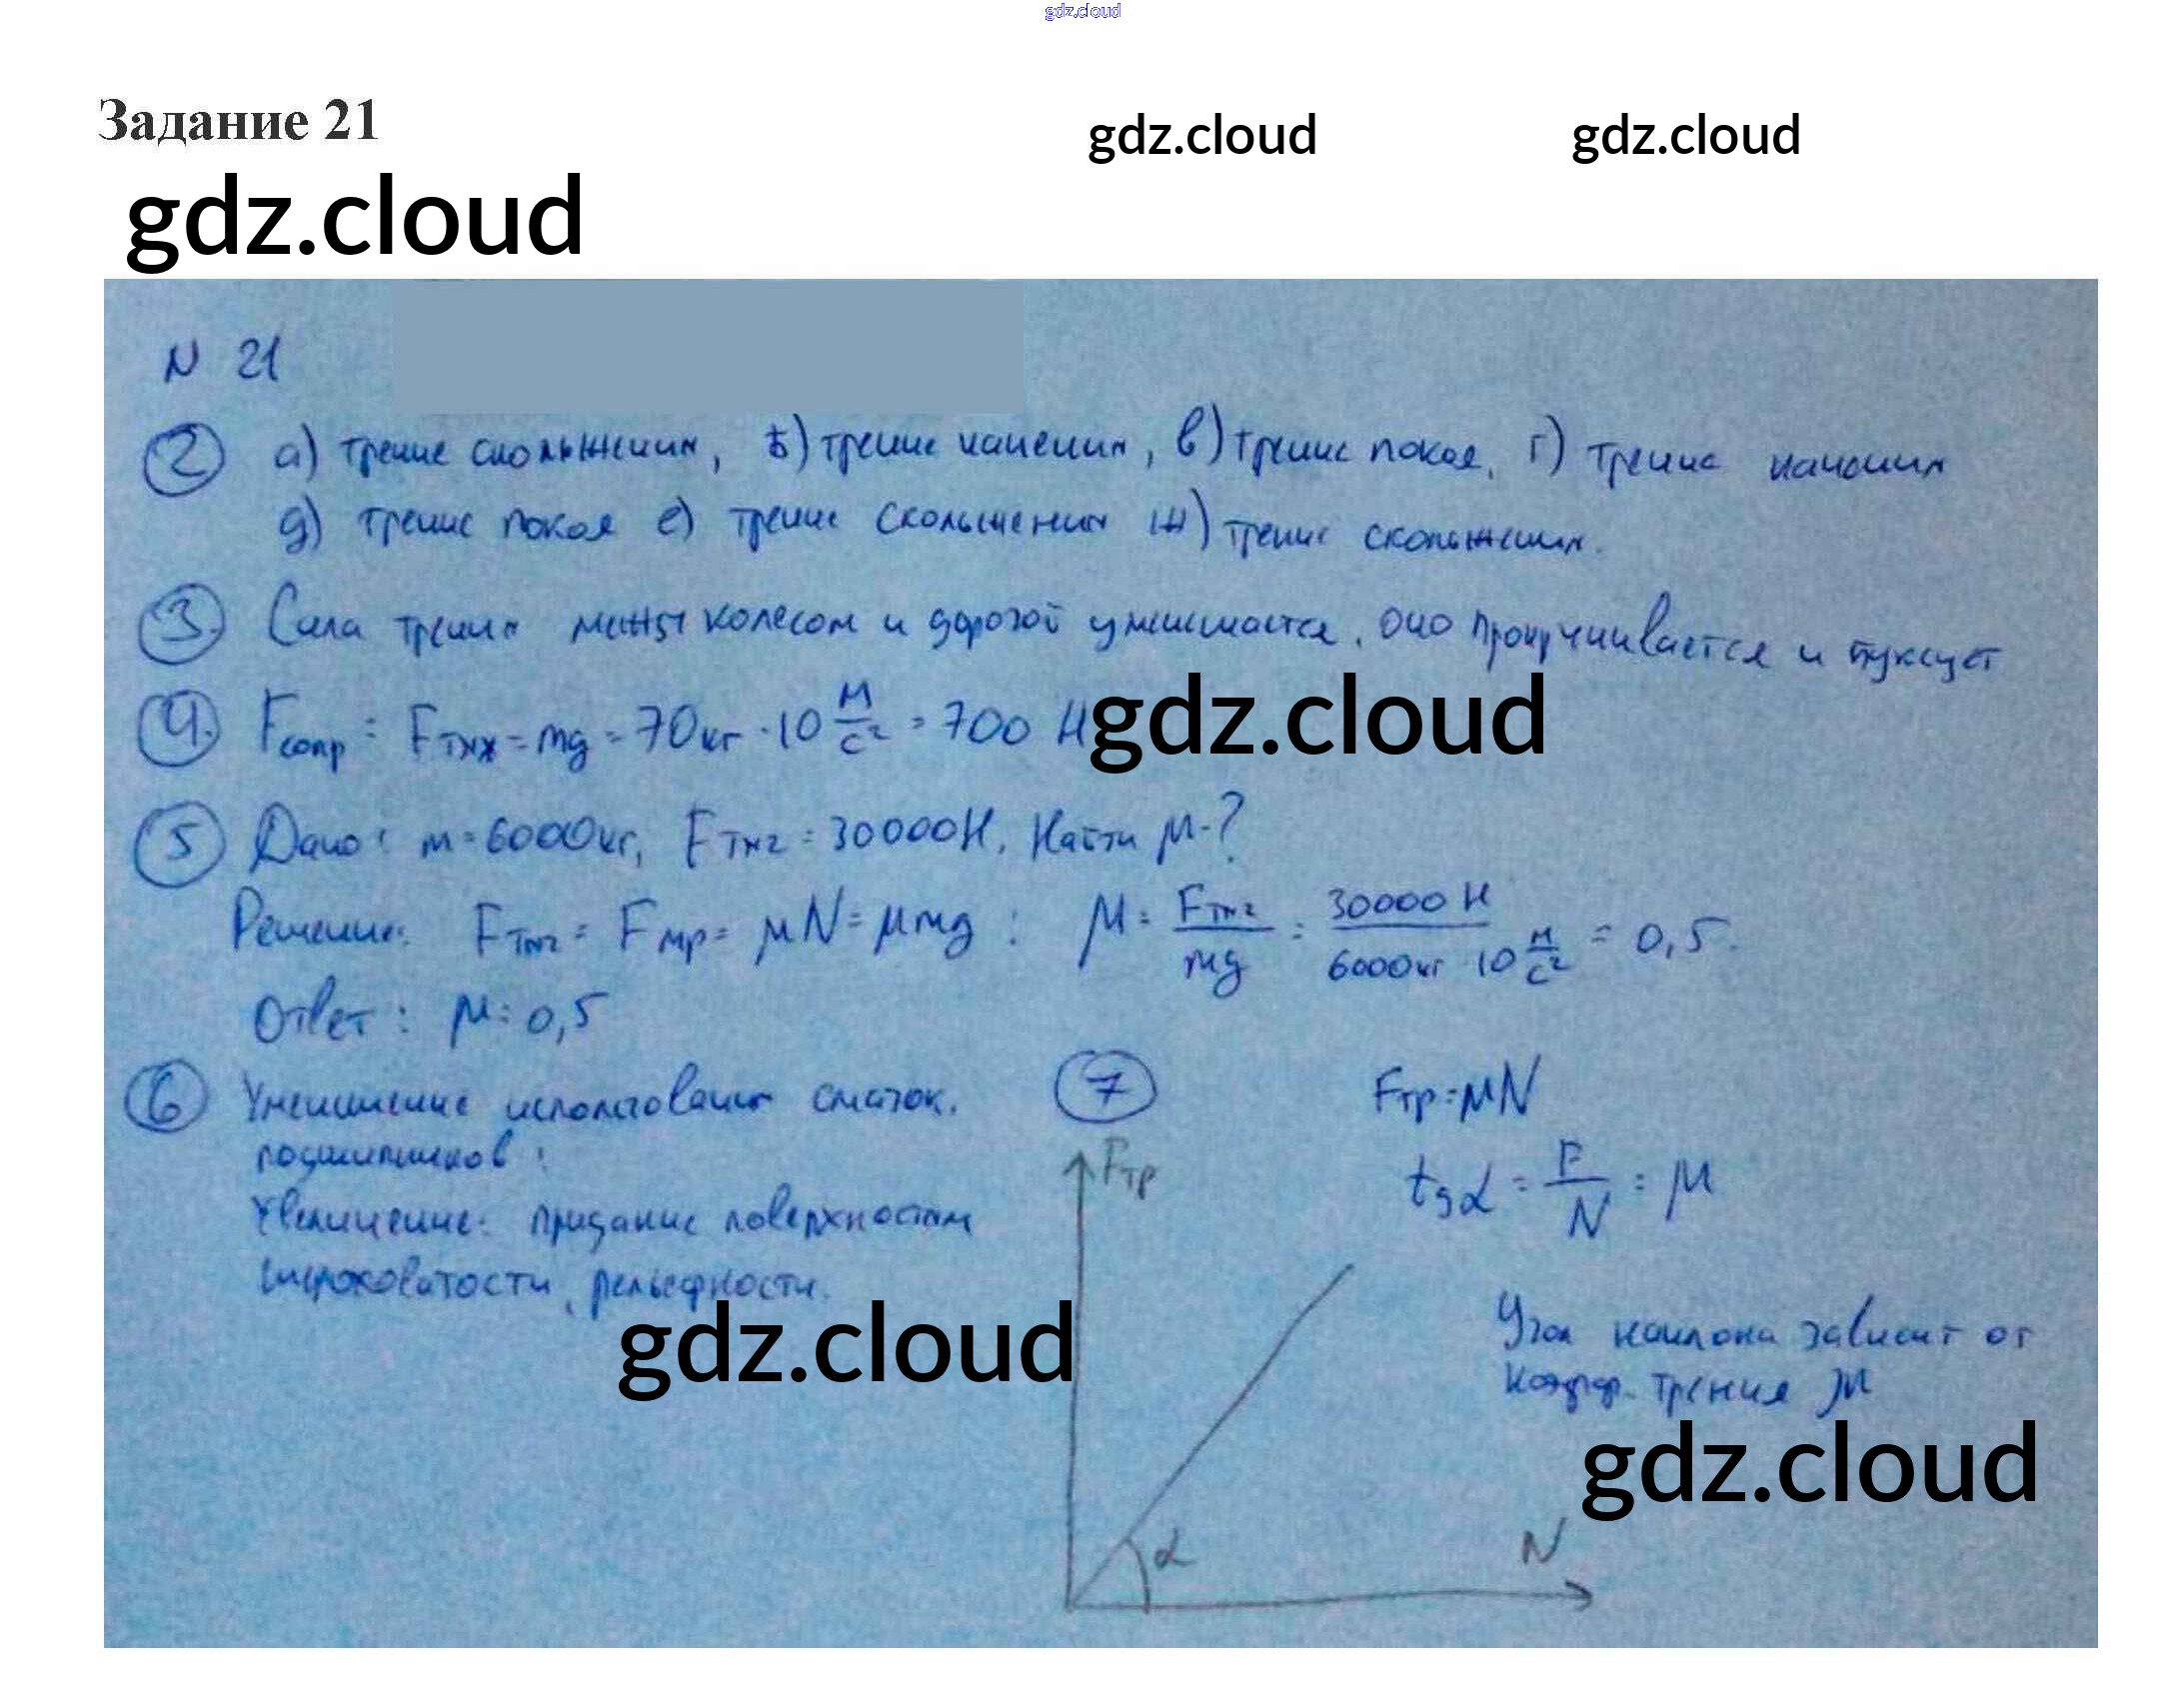 gdz.cloud
Задание 21
gdz.cloud gdz.cloud
gdz.cloud
N 21
② а) трение скольжения, б) трение качения, в) трение покоя, г) трение качения
д) трение покоя е) трение скольжения ж) трение скольжения.
③. Сила трения между колесом и дорогой уменьшается. Оно прокручивается и буксует
④. Fсопр = Fтяж = mg = 70кг · 10 м/с² = 700 Н
gdz.cloud
⑤ Дано: m = 6000кг, Fтяг = 30000Н. Найти μ-?
Решение: Fтяг = Fтр = μN = μmg : μ = Fтяг/mg = 30000 Н/6000кг 10 м/с² = 0,5.
Ответ: μ = 0,5
⑥ Уменьшение использования смазок.
подшипников:
Увеличение: придание поверхностям
шероховатости, рельефности.
gdz.cloud
⑦ Fтр = μN
Fтр
tgα = F/N = μ
Угол наклона зависит от
коэфф. трения μ
gdz.cloud
α
N